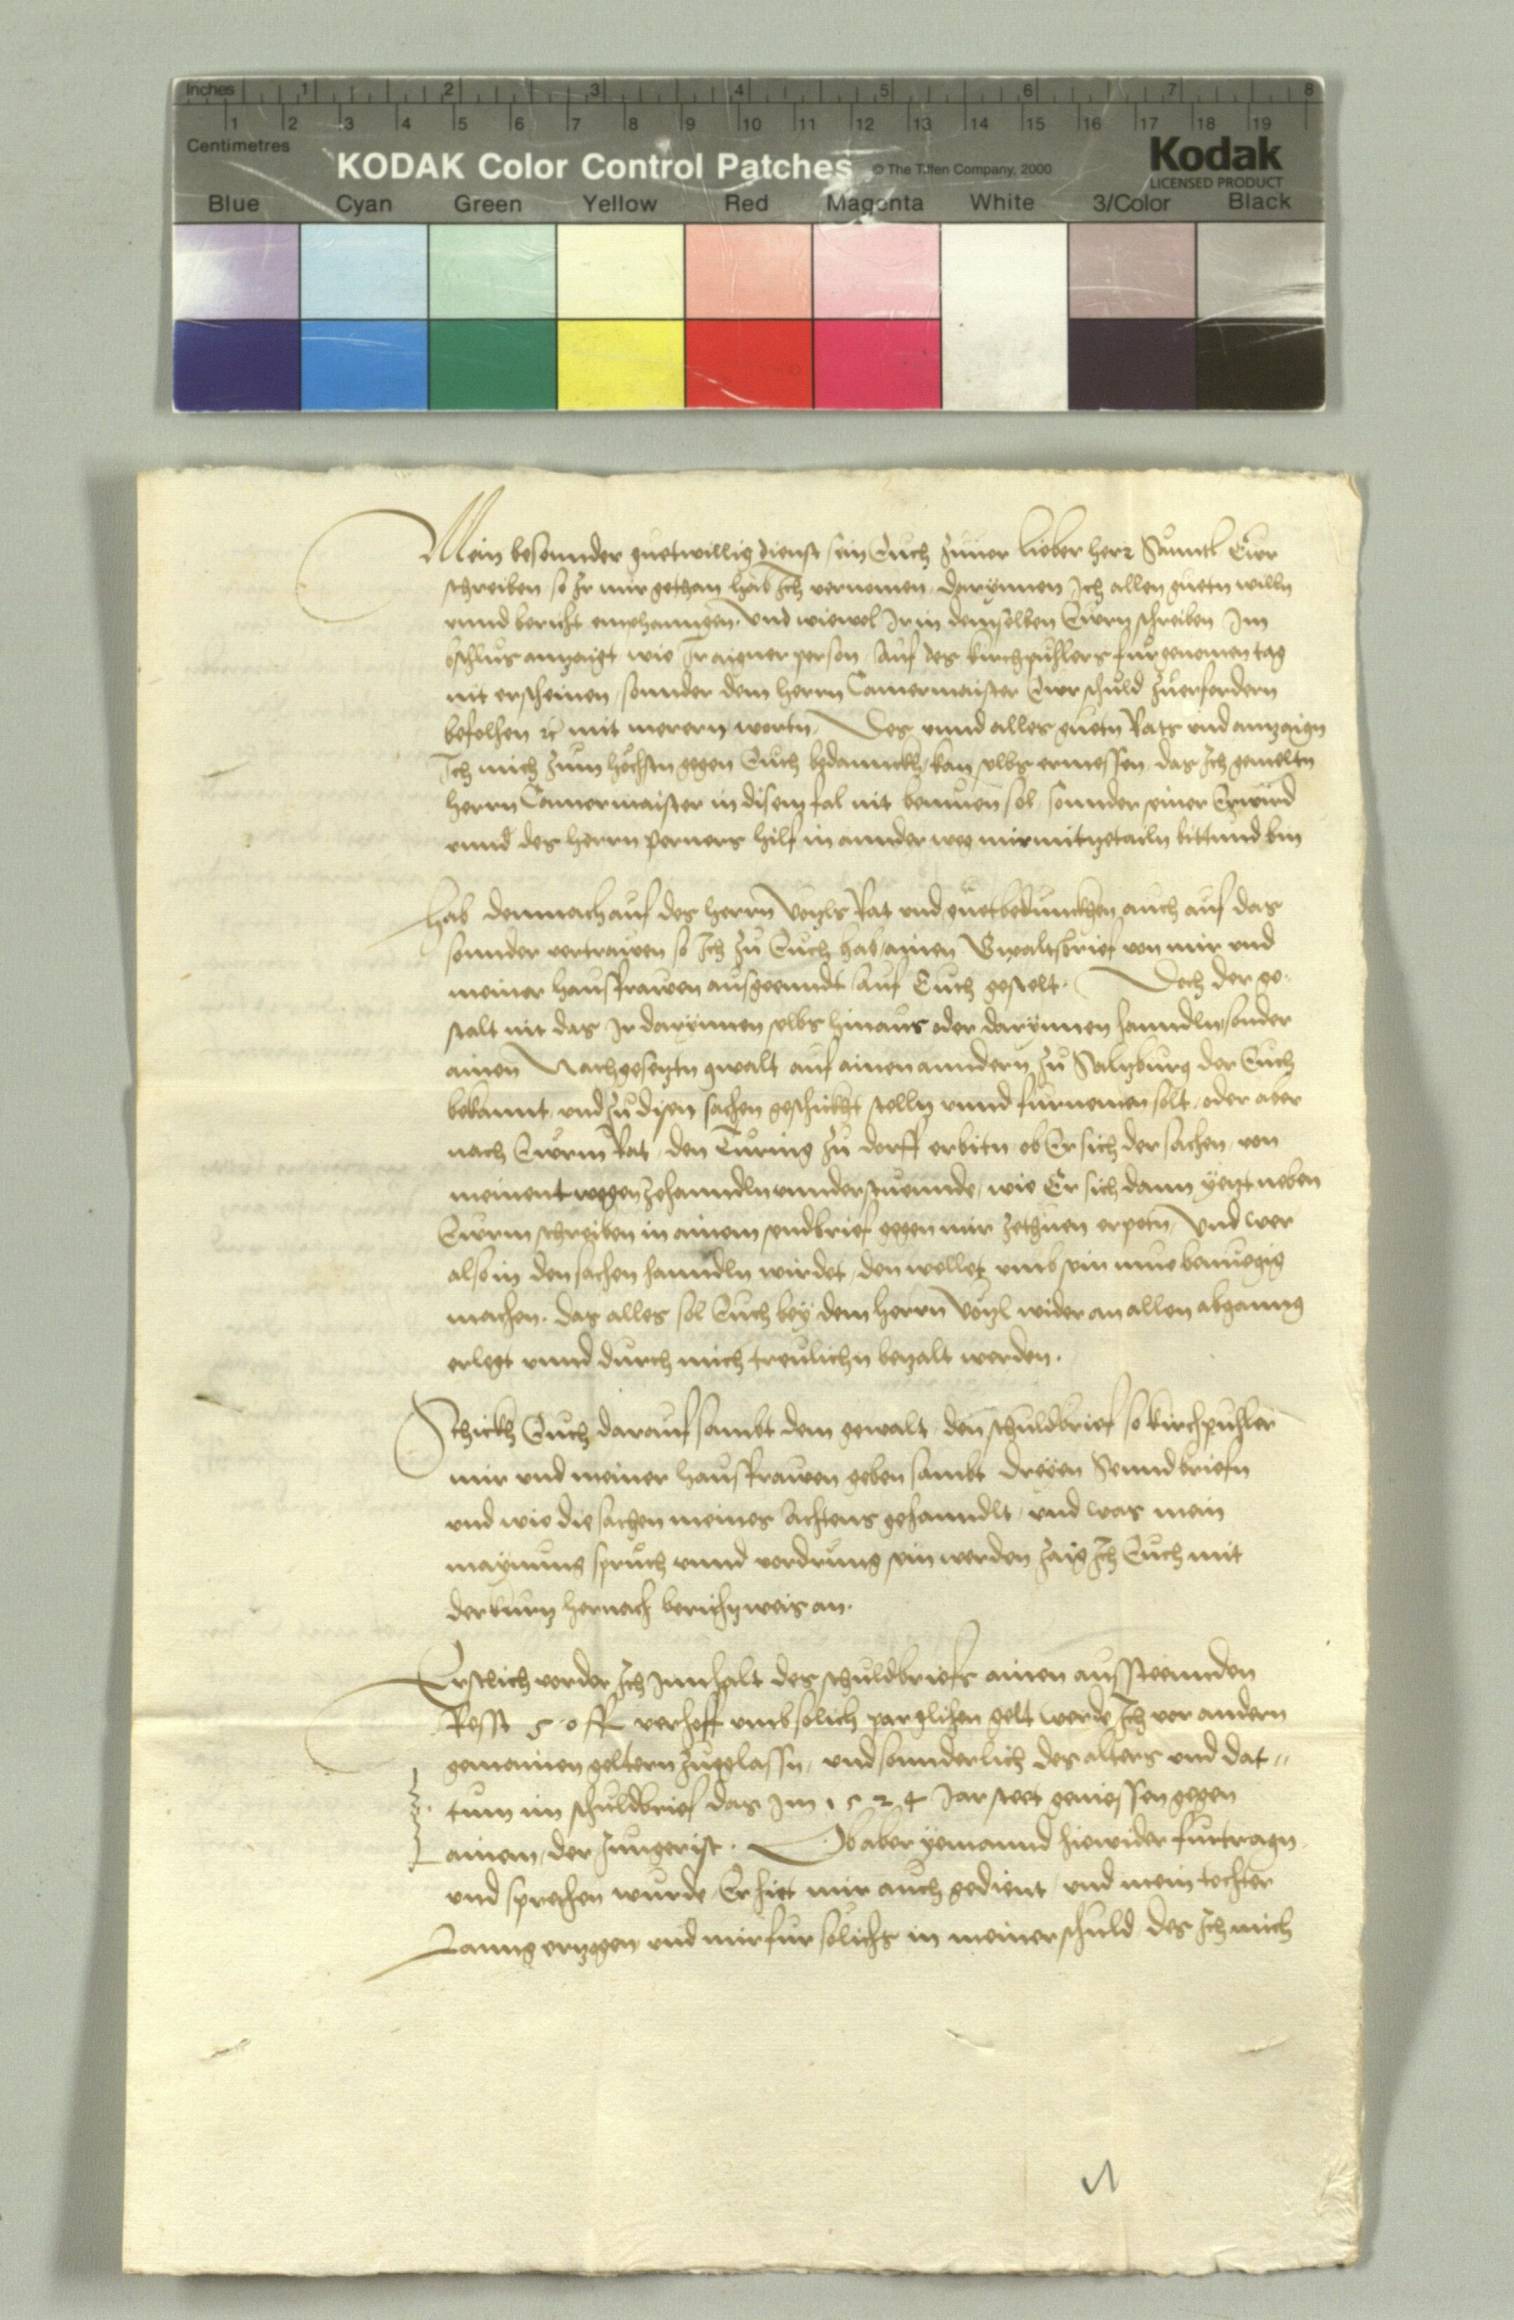 Inches 1 2 3 4 5 6 7 8
1 2 3 4 5 6 7 8 9 10 11 12 13 14 15 16 17 18 19
Centimetres
KODAK Color Control Patches © The Tiffen Company, 2000 Kodak
LICENSED PRODUCT
Blue Cyan Green Yellow Red Magenta White 3/Color Black
Mein besonnder guetwillig dienst sein Euch zuuor lieber herr Eur
schreiben so Ir mir gethan hab Ich vernomen, darynnen Ich allen guetn willn
vnnd bericht emphanngen. Vnd wiewol Ir in demselben Eurm schreiben Im
bschlus anzaigt wie Ir aigner person, Auf des kirchpuhlers furgenomen tag
nit erscheinen, sonnder dem herrn Camermaister Eur schuld zuerfordern
befolhen rc mit merern wortn, Des vnnd alles guetn Rats vnd anzaign
Ich mich zum hochstn gegen Euch bedannckh, kan selbs ermessen, das Ich gemeltn
herrn Camermaister in disem fal nit bemuen sol, sonnder seiner Erwird
vnnd des herrn perners hilf in annder weg mir mitzetailn bittund bin
Hab demnach auf des herrn Vogls Rat vnd guetbedunckhen auch auf das
sonnder vertrawen so Ich zu Euch hab, ainen Gwaltsbrief von mir vnd
meiner hausfrawen ausgeenndt, auf Euch gestelt. Doch der ge-
stalt nit das Ir darynnen selbs hinaus oder darynnen hanndln, sonder
ainen Nachgesetztn gwalt auf ainen anndern zu Saltzburg der Euch
bekannt, vnd zu disen sachen geschickht stelln vnnd furnemen solt, oder aber
nach Eurm Rat, den During zu dorff erbitn, ob Er sich der sachen, von
meinent wegen zehanndln vnnderstuennde, wie Er sich dann yetzt neben
Eurm schreiben in ainem sendbrief gegen mir zethuen erpetn, Vnd wer
also in den sachen hanndln wirdet, den wellet vmb sein mue benuegig
machen. Das alles sol Euch bey dem herrn Vogl wider an allen abganng
erlegt vnnd durch mich treulichn bezalt werden.
Schickh Euch darauf sambt dem gewalt, den schuldbrief so kirchpuhler
mir vnd meiner hausfrawen geben sambt dreyen Senndbriefn
vnd wie die sachen meines achtens gehanndlt, vnd was mein
maynung spruch vnnd vordrung sein werden zaig Ich Euch mit
der kurtz hernach berichtz weis an.
Erstlich vorder Ich Innhalt des schuldbriefs ainen aussteenden
Resst 50 fl verhoff vmb solich par glihen gelt werde Ich vor andern
gemainen geltern zugelassn, vnd sonnderlich des alters vnd dat-
tum im schuldbrief das Im 1524 Jar steet geniessen gegen
ainem, der Junger ist. Ob aber yemannd hiewider furtragn
vnd sprechen wurde, Er hiet mir auch gedient, vnd mein tochter
Lanng ertzogen, vnd mir fur solichs in meiner schuld des Ich mich